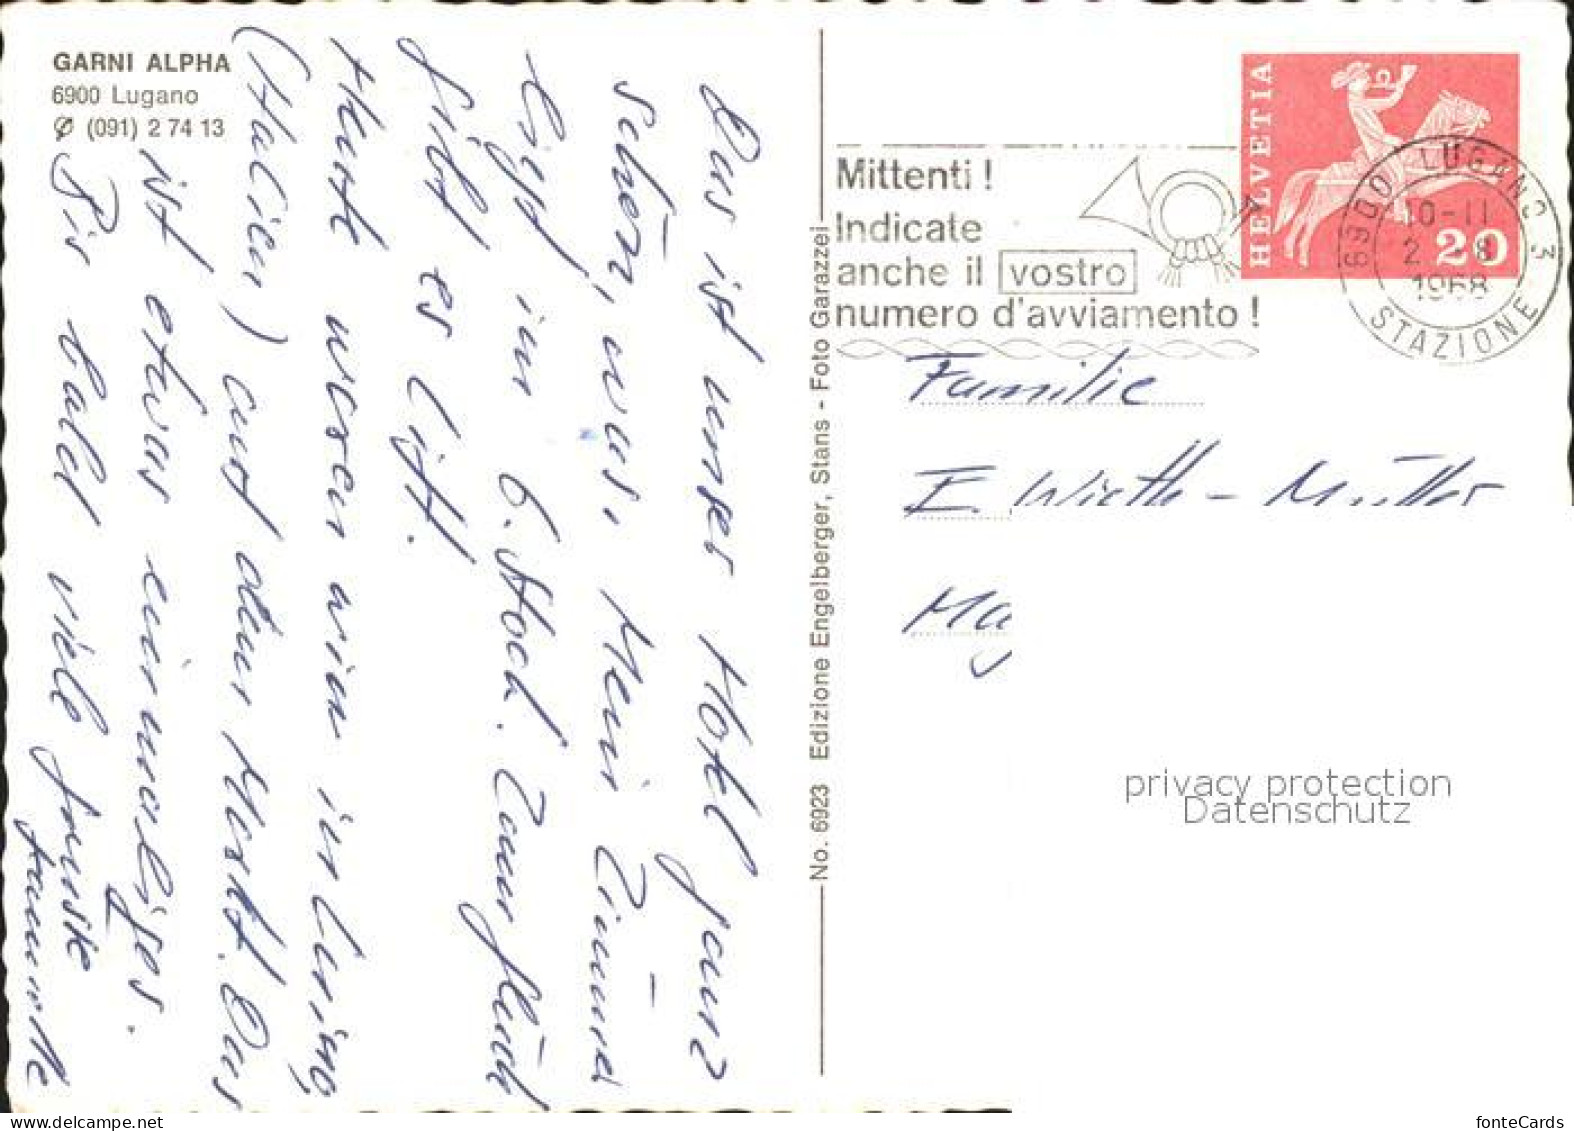 GARNI ALPHA
6900 Lugano
(091) 2 74 13
Das ist unser Hotel ganz
schön, was. Mein Zimmer
liegt im 6. Stock. Zum Glück
gibt es Lift.
Heute waren wir in Luino,
(Italien) auf dem Markt. Das
ist etwas einmaliges.
Bis bald viele Grüsse
No. 6923 Edizione Engelberger, Stans - Foto Garazzei
Mittenti !
Indicate
anche il vostro
numero d'avviamento !
HELVETIA
20
6900 LUGANO 3
10-11
1968
STAZIONE
Familie
E. - Müller
privacy protection
Datenschutz
fonteCards